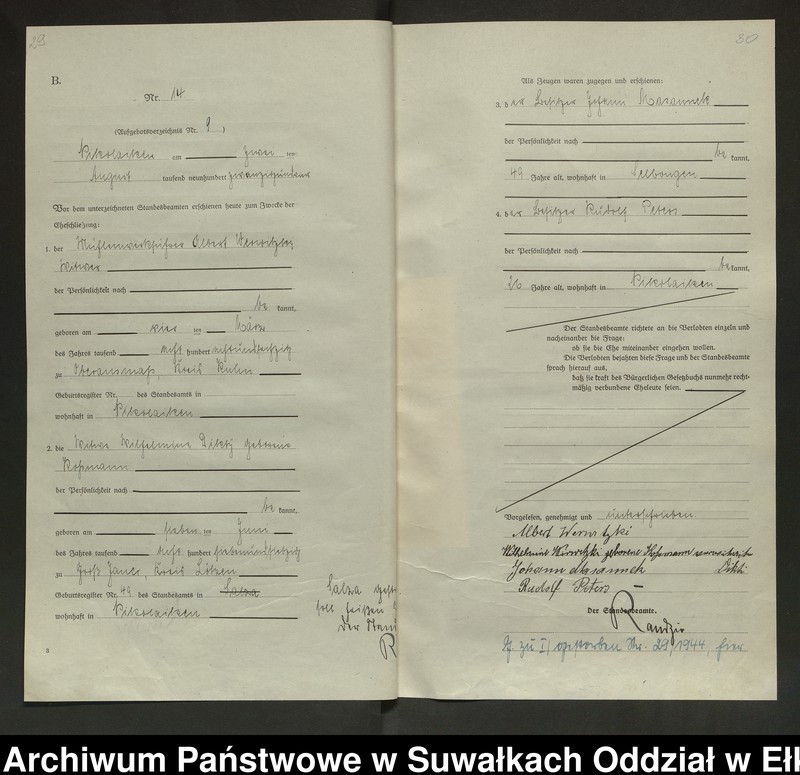 29
B.
Nr. 14
(Aufgebotsverzeichnis Nr. 9)
Nikolaiken am zwei ten
August tausend neunhundert zwanzigund
Vor dem unterzeichneten Standesbeamten erschienen heute zum Zwecke der
Eheschließung:
1. der Mühlenwerkführer Albert
Witwer
der Persönlichkeit nach
be kannt,
geboren am vier ten März
des Jahres tausend acht hundert achtundsechzig
zu Kreis Kulm
Geburtsregister Nr. des Standesamts in
wohnhaft in Nikolaiken
2. die Witwe Wilhelmine geborene
Koßmann
der Persönlichkeit nach
be kannt,
geboren am sieben ten Juni
des Jahres tausend acht hundert siebenundsiebzig
zu Groß Kreis Lötzen
Geburtsregister Nr. 49 des Standesamts in
wohnhaft in Nikolaiken
soll heißen
Der Stan
R
3
30
Als Zeugen waren zugegen und erschienen:
3. der Besitzer Johann Masannek
der Persönlichkeit nach
be kannt,
49 Jahre alt, wohnhaft in Selbongen
4. der Besitzer Rudolf Peters
der Persönlichkeit nach
be kannt,
26 Jahre alt, wohnhaft in Nikolaiken
Der Standesbeamte richtete an die Verlobten einzeln und
nacheinander die Frage:
ob sie die Ehe miteinander eingehen wollen.
Die Verlobten bejahten diese Frage und der Standesbeamte
sprach hierauf aus,
daß sie kraft des Bürgerlichen Gesetzbuchs nunmehr recht-
mäßig verbundene Eheleute seien.
Vorgelesen, genehmigt und unterschrieben
Albert Werwitzki
Wilhelmine Werwitzki geborene Koßmann verwitwete
Johann Masannek
Rudolf Peters
Der Standesbeamte.
Randzio
zu I) gestorben Nr. 29/1944, hier
Archiwum Państwowe w Suwałkach Oddział w Ełk